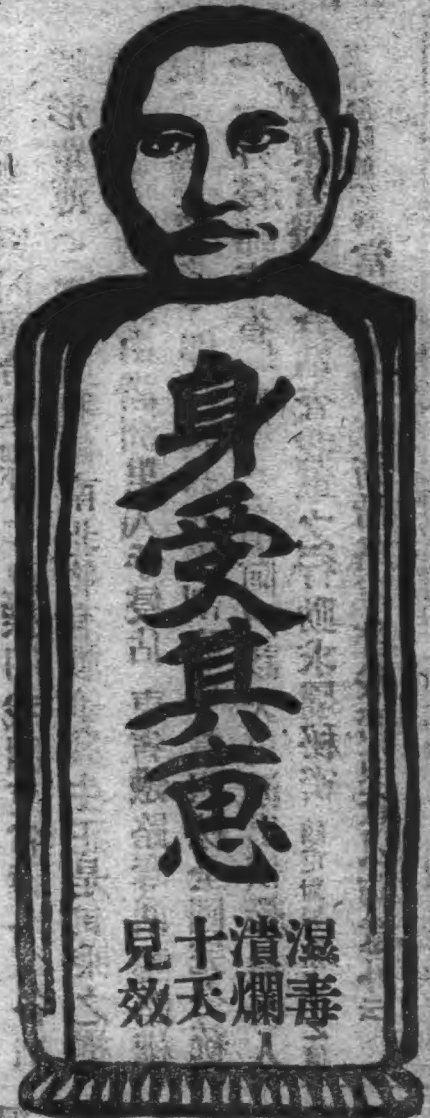 身受其惠
湿毒
潰爛
十天
見效